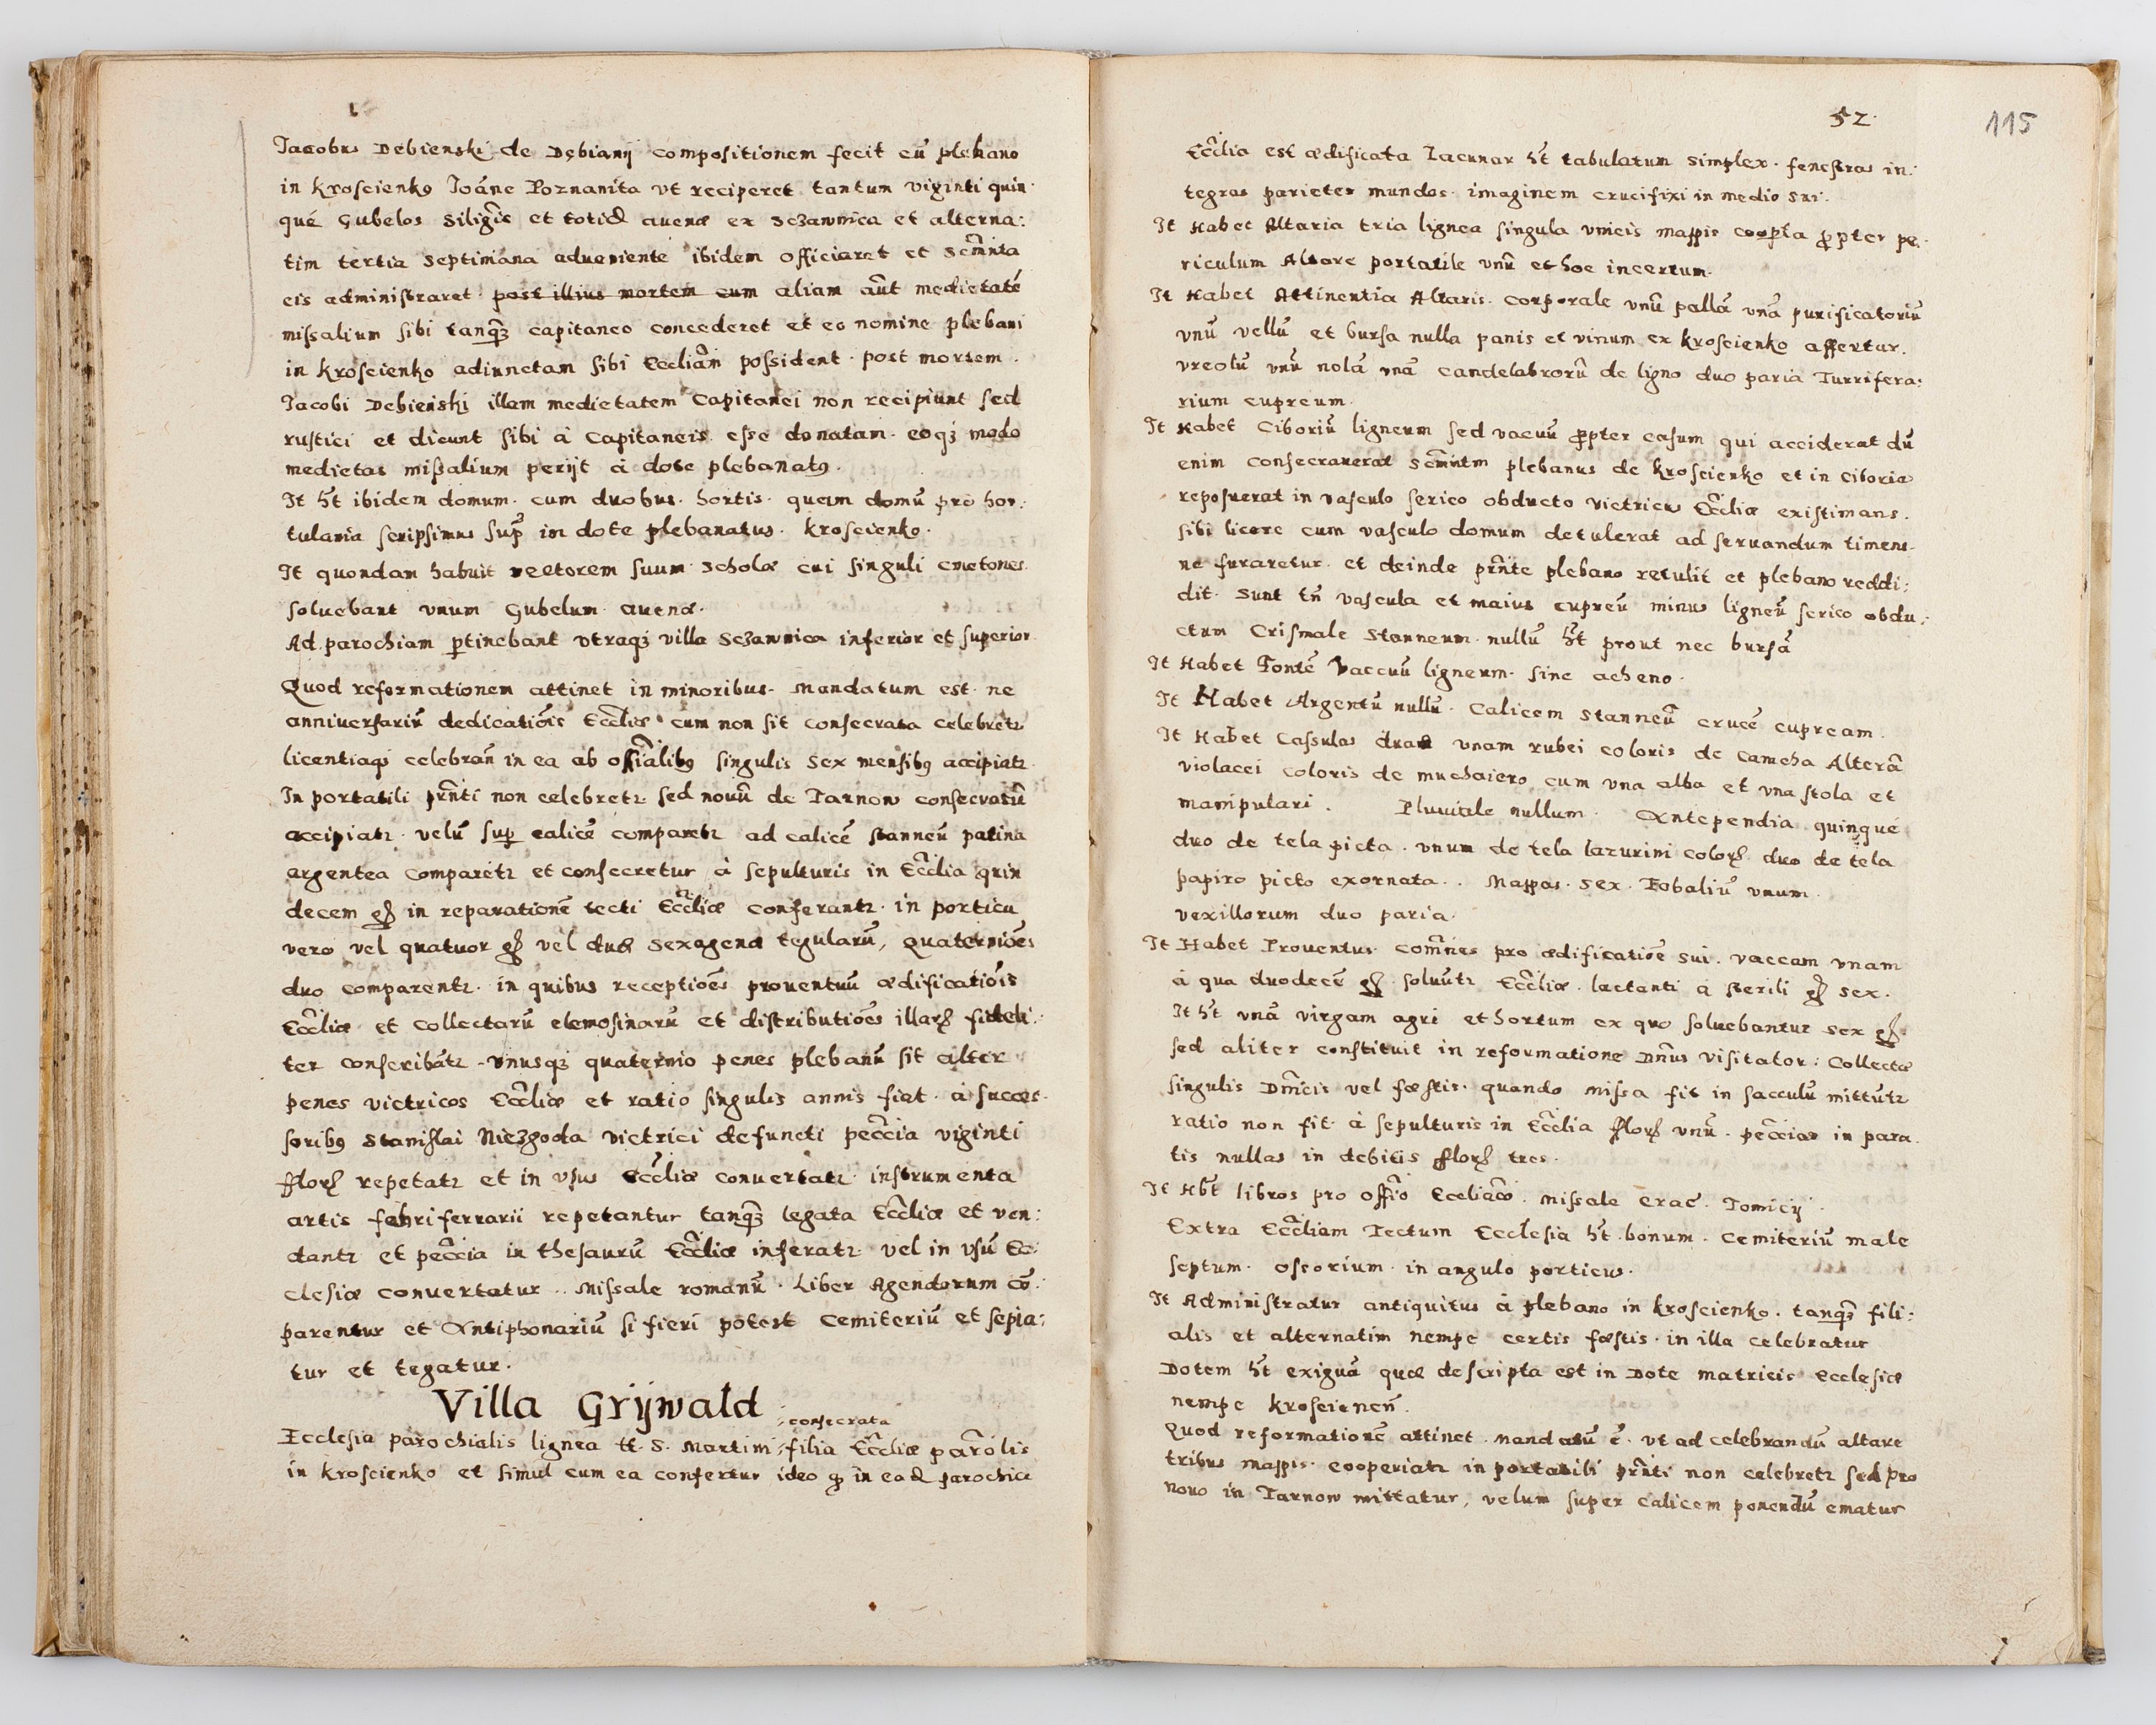 Jacobus Debienski de Dębianÿ compositionem fecit cū plebano
in kroscienko Joāne Poznanita vt reciperet tantum viginti quin:
qué Gubelos siligis et totid avenæ ex Sczawnica et alterna:
tim tertia septimana adueniente ibidem officiaret et Scmnta
eis administraret post illius mortem cum aliam aūt medietatē
missalium sibi tanqȝ capitaneo concederet et eo nomine plebani
in kroscienko adiunctam sibi Eccliam possident. post mortem.
Jacobi Debienski illam medietatem Capitanei non recipiunt sed
rustici et dicunt sibi à Capitaneis esse donatam. eoqȝ modo
medietas missalium perijt à dote plebanatꝰ.
It ht ibidem domum. cum duobus. hortis. quam domū pro hor:
tulania scripsimus sup in dote plebanatus. kroscienko.
It quondam habuit rectorem suum scholæ cui singuli cmetones
soluebant vnum Gubelum auenæ.
Ad parochiam ptinebant vtraqȝ villa Sczawnica inferior et superior
Quod reformationem attinet in minoribus. Mandatum est. ne
anniuersariū dedicatiōis Eccliæ cum non sit consecrata celebretr
licentiaqȝ celebran in ea ab offialibꝰ singulis sex mensibꝰ accipiatr
In portatili prnti non celebretr sed nouū de Tarnow consecratū
accipiatr. velū sup calicē comparetr ad calicē stanneū patina
argentea comparetr et consecretur à sepulturis in Ecclia quin
decem gȝ in reparationē tecti Eccliæ conferantr. in porticu
vero vel quatuor gȝ vel duæ sexagenæ tegularū, Quaterniōes
duo comparentr. in quibus receptiōes prouentuū ædificatiōis
Eccliæ et collectarū elemosinarū et distributiōes illarȝ fideli:
ter conscribātr. vnusqȝ quaternio penes plebanū sit alter
penes victricos Eccliæ et ratio singulis annis fiat. à succes
soribꝰ Stanislai Niezgoda victrici defuncti peccia viginti
fflorȝ repetatr et in vsus Eccliæ conuertatr instrumenta
artis fabri ferrarii repetantur tanqȝ legata Eccliæ et ven:
dantr et peccia in thesaurū Eccliæ inferatr vel in vsū Ec:
clesiæ conuertatur.. Missale romanū. Liber Agendorum cō:
parentur et Antiphonariū si fieri potest Cemiteriū et sepia:
tur et tegatur.
Villa Grÿwald
consecrata
Ecclesia parochialis lignea tt. S. Martini filia Eccliæ parolis
in kroscienko et simul cum ea confertur ideo q in ead parochia
52.
115
Ecclia est ædificata Lacunar ht tabulatum simplex. fenestras in:
tegras parietes mundos. imaginem crucifixi in medio sui.
It Habet Altaria tria lignea singula vnicis mappis coopta propter pe:
riculum Altare portatile vnū et hoc incertum.
It Habet Attinentia Altaris. Corporale vnū pallā vnā purificatoriū
vnū vellū et bursa nulla panis et vinum ex kroscienko affertur.
vreolū vnū nolā vnā candelabrorū de ligno duo paria Turrifera:
rium cupreum.
It Habet Ciboriū ligneum sed vacuū propter casum qui acciderat dū
enim consecrauerat scmntm plebanus de kroscienko et in Ciboria
reposuerat in vasculo serico obducto victricus Eccliæ existimans.
sibi licere cum vasculo domum detulerat ad seruandum timens
ne furaretur. et deinde prnte plebano retulit et plebano reddi:
dit. sunt tn vascula et maius cupreū minus ligneū serico obdu:
ctum Crismale stanneum. nullū ht prout nec bursā
It Habet Fontē Vaccuū ligneum. sine acheno.
It Habet Argentū nullū. Calicem stanneū crucē cupream.
It Habet Cassulas duas vnam rubei coloris de Camcha Alterā
violacei coloris de muchaiero cum vna alba et vna stola et
manipulari. Pluuiale nullum. Antependia quinqué
duo de tela picta. vnum de tela lazurini colorȝ duo de tela
papiro picto exornata.. Mappas. sex. Tobaliū vnum.
vexillorum duo paria.
It Habet Prouentus comnes pro ædificatiōe sui. vaccam vnam
à qua duodecē gȝ soluūtr Eccliæ. lactanti à sterili gȝ sex.
It ht vnā virgam agri et hortum ex quo soluebantur sex gȝ.
sed aliter constituit in reformatione Dnus visitator: Collectæ
singulis Dmcis vel fæstis. quando missa fit in sacculū mittūtr
ratio non fit. à sepulturis in Ecclia fflorȝ vnū. peccias in para.
tis nullas in debitis fflorȝ tres.
It Hbt libros pro offio Eccliaco. Missale Crac. Tomicij.
Extra Eccliam Tectum Ecclesia ht. bonum. Cemiteriū male
septum. oscorium. in angulo porticus.
It Administratur antiquitus à plebano in kroscienko. tanqȝ fili:
alis et alternatim nempe certis fæstis. in illa celebratur
Dotem ht exiguā quæ descripta est in Dote matricis Ecclesiæ
nempe krosciencn.
Quod reformationē attinet. Mandatū ē. vt ad celebrandū altare
tribus mappis. cooperiatr in portatili prnti non celebretr sed pro
nouo in Tarnow mittatur, velum super calicem ponendū ematur